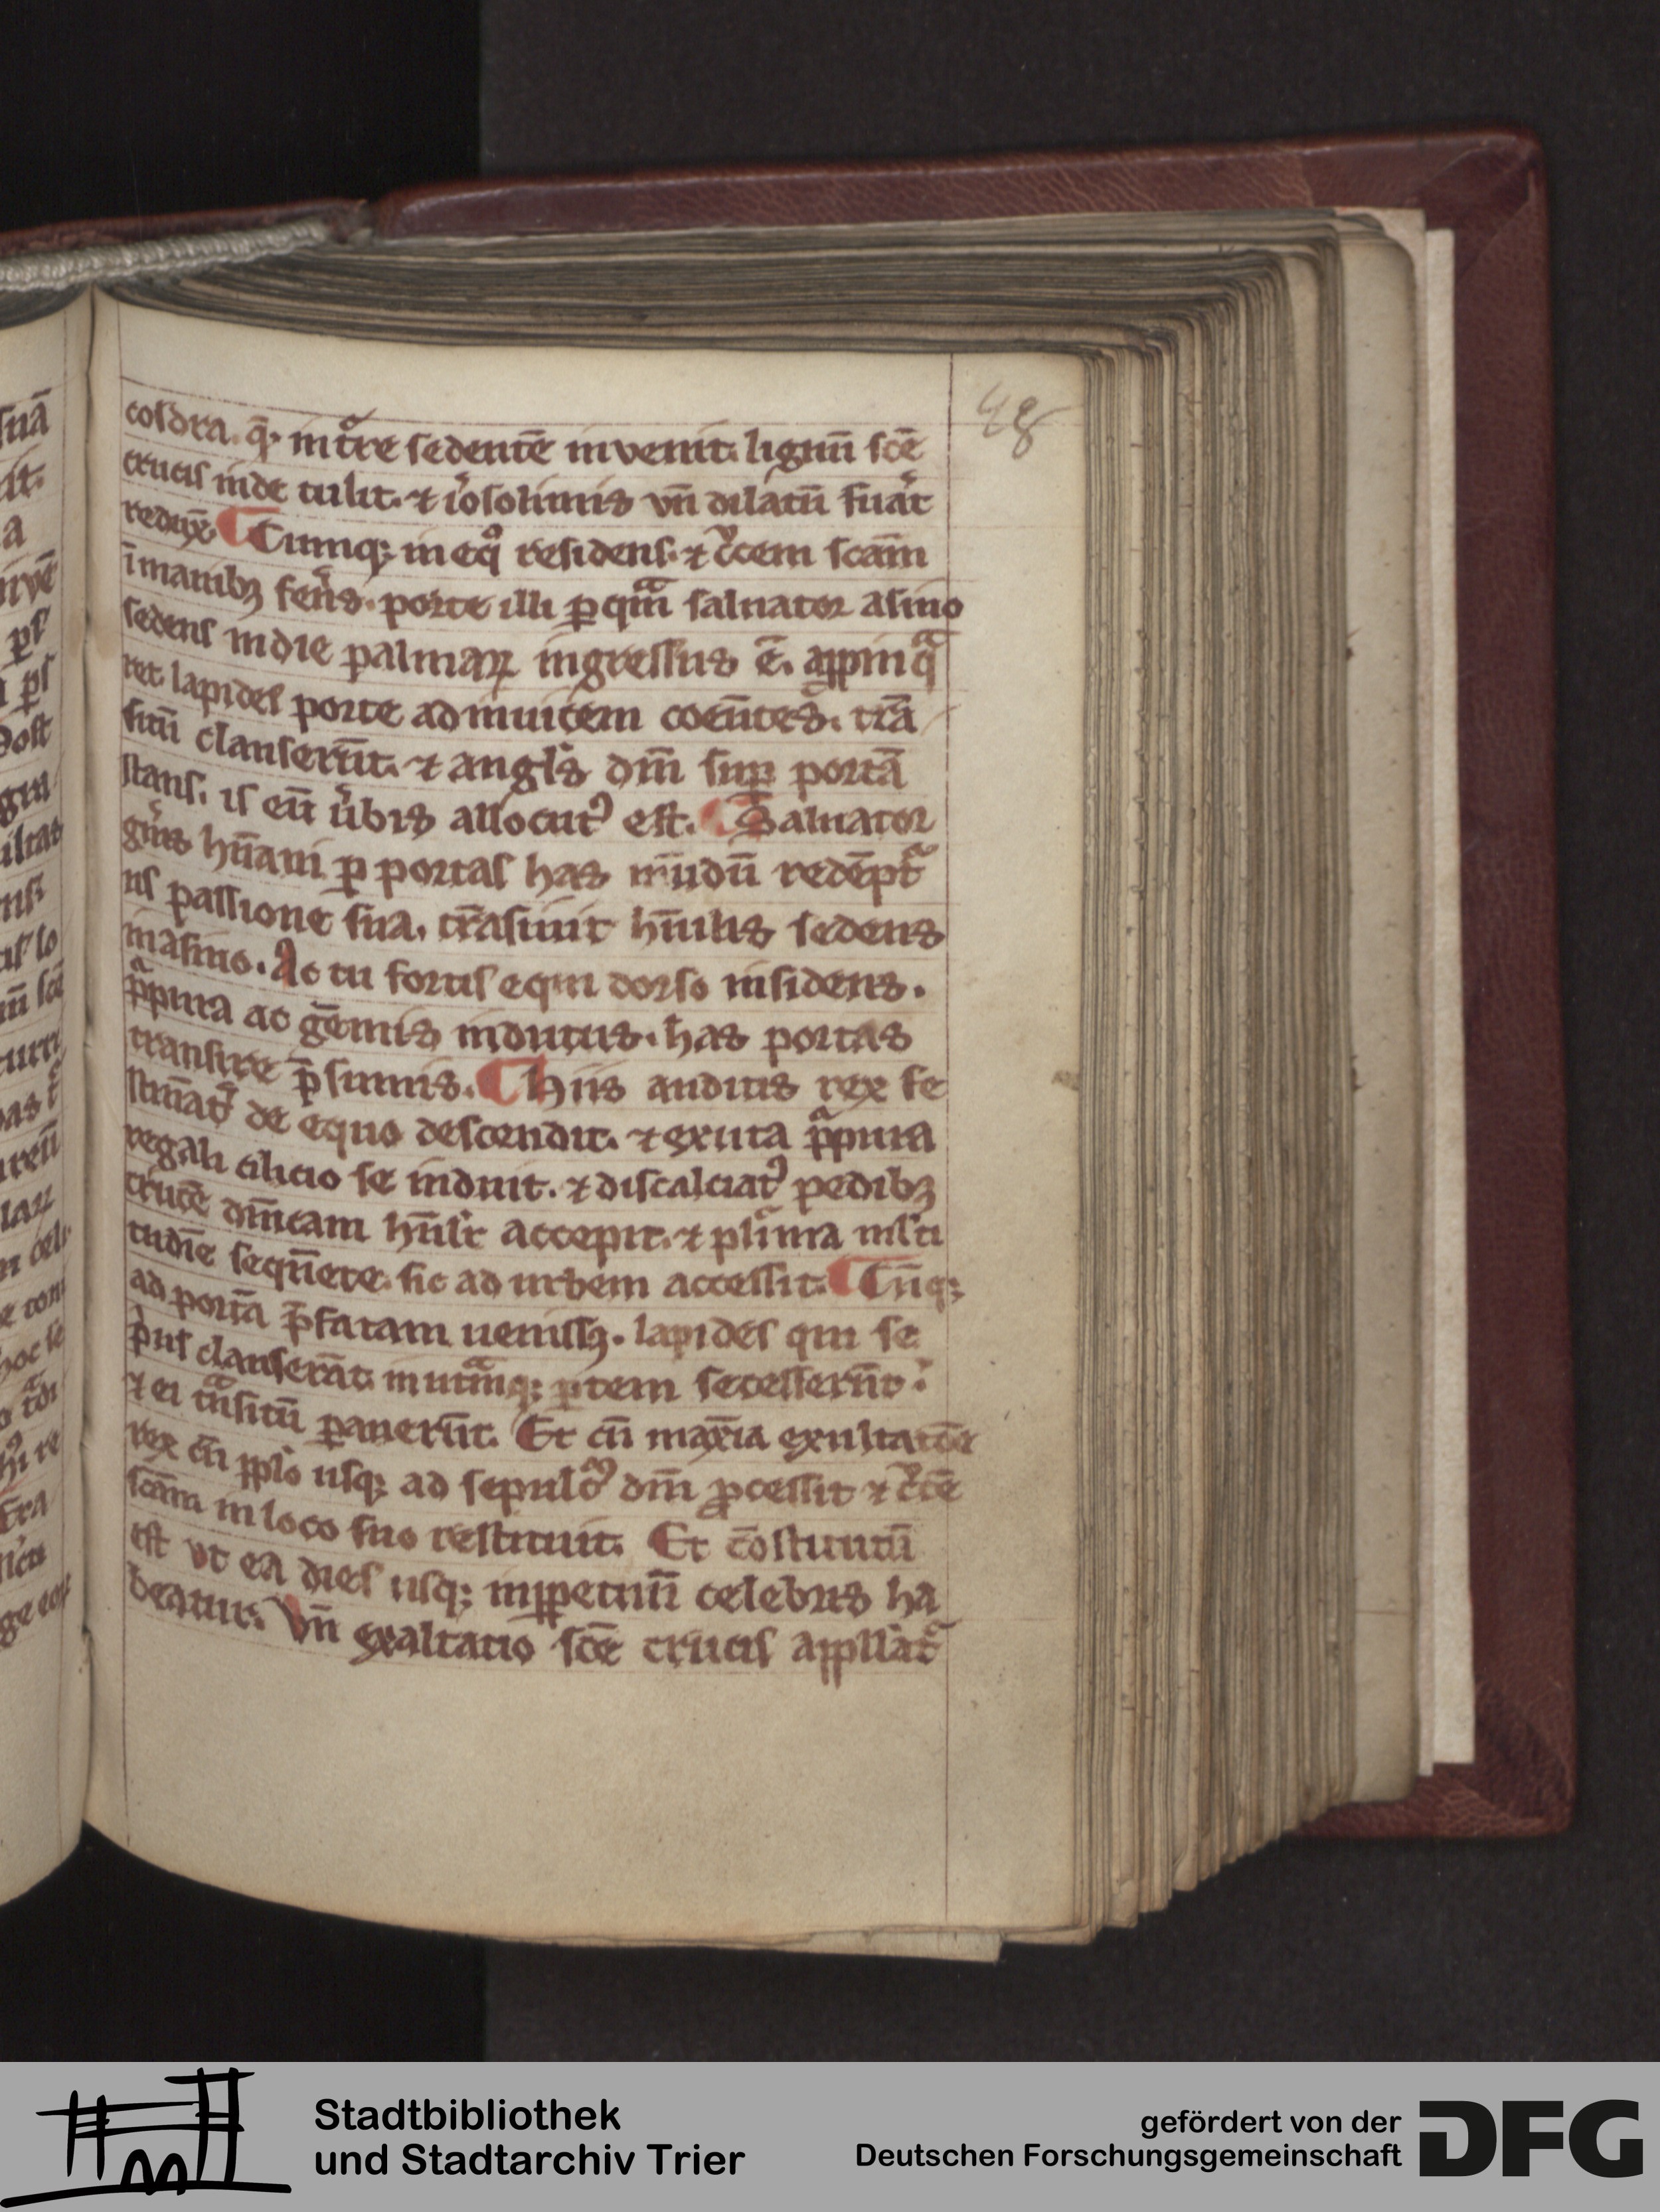 48
cosdra. q̄. in tͦre sedentē invenit. lignū scē
crucis inde tulit. ⁊ ih̓osolimis vn̄ dilatū fuat̓
redux̄. Cumq; in eqͦ residens. ⁊ cͬcem scām
ī manibꝫ feren̓s. porte illi ꝑ qͣm saluator asino
sedens in die palmaꝝ ingressus ē. appinqͣ
ret lapides porte ad inuicem coeūtes. trā
sitū clauserūt. ⁊ angl̓s dn̄i suꝑ portā
stans. is eū ūbis allocutꝰ est. Saluator
gn̓is hūani ꝑ portas has mūdū redēptͬ
us passione sua. trāsiuit hūilis sedens
in asino. Ac tu fortis equi dorso insidens.
pͬpura ac gēmis indutus. has portas
transire p̄sumis. Hiis auditis rex fe
stinat̓ de equo descendit. ⁊ exuta pͬpura
regali cilicio se induit. ⁊ discalciatꝰ pedibꝫ
crucē dn̄icam hūilit̓ accepit. ⁊ plͥma mlti
tudīe sequēte. sic ad urbem accessit. Cūq;
ad portā p̄fatam uenissꝫ. lapides qui se
pͥus clauserāt. in utͣmq; ꝑtem secesserūt.
⁊ ei tͣnsitū ꝑauerūt. Et cū maxīa exultatōe
rex cū pplo usq; ad sepulcͬ dn̄i ꝓcessit ⁊ cͬcē
scām in loco suo restituit. Et cōstitutū
est vt ea dies usq; in ꝑpetuū celebris ha
beatur. Vn̄ exaltatio scē crucis appllatͬ
Stadtbibliothek
und Stadtarchiv Trier
gefördert von der
Deutschen Forschungsgemeinschaft
DFG